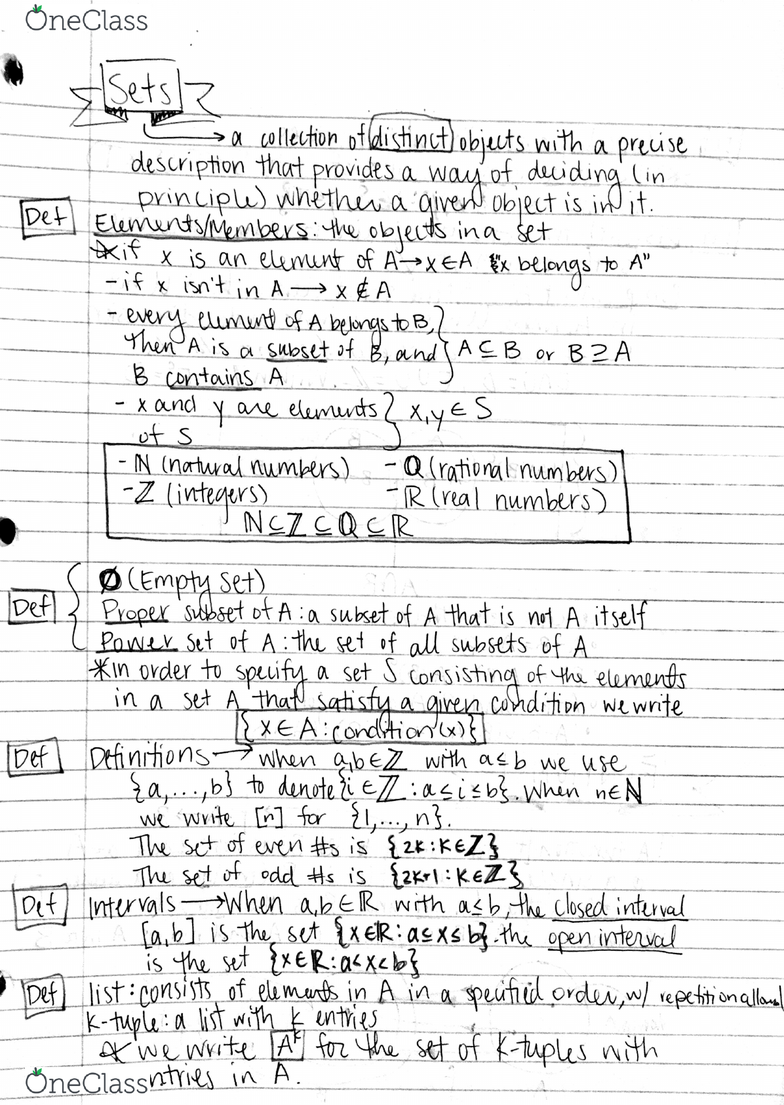 OneClass
Sets
→ a collection of distinct objects with a precise
description that provides a way of deciding (in
principle) whether a given object is in it.
Def Elements/Members: the objects in a set
* if x is an element of A → x ∈ A "x belongs to A"
- if x isn't in A → x ∉ A
- every element of A belongs to B,
Then A is a subset of B, and } A ⊆ B or B ⊇ A
B contains A
- x and y are elements } x, y ∈ S
of S
- ℕ (natural numbers) - ℚ (rational numbers)
- ℤ (integers) - ℝ (real numbers)
ℕ ⊆ ℤ ⊆ ℚ ⊆ ℝ
∅ (Empty Set)
Def { Proper subset of A: a subset of A that is not A itself
Power set of A: the set of all subsets of A
* in order to specify a set S consisting of the elements
in a set A that satisfy a given condition we write
{x ∈ A : condition (x)}
Def Definitions → when a,b ∈ ℤ with a ≤ b we use
{a, ..., b} to denote {i ∈ ℤ : a ≤ i ≤ b}. When n ∈ ℕ
we write [n] for {1, ..., n}.
The set of even #s is {2k : k ∈ ℤ}
The set of odd #s is {2k+1 : k ∈ ℤ}
Def Intervals → When a,b ∈ ℝ with a ≤ b, the closed interval
[a,b] is the set {x ∈ ℝ : a ≤ x ≤ b}. the open interval
is the set {x ∈ ℝ : a < x < b}
Def list: consists of elements in A in a specified order, w/ repetition allowed
k-tuple: a list with k entries
* we write Aᵏ for the set of k-tuples with
OneClass ntries in A.